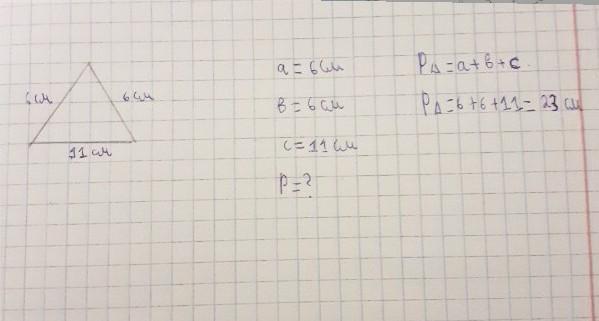 6 см
6 см
11 см
a = 6 см
в = 6 см
c = 11 см
P = ?
P△ = a + в + c.
P△ = 6 + 6 + 11 = 23 см